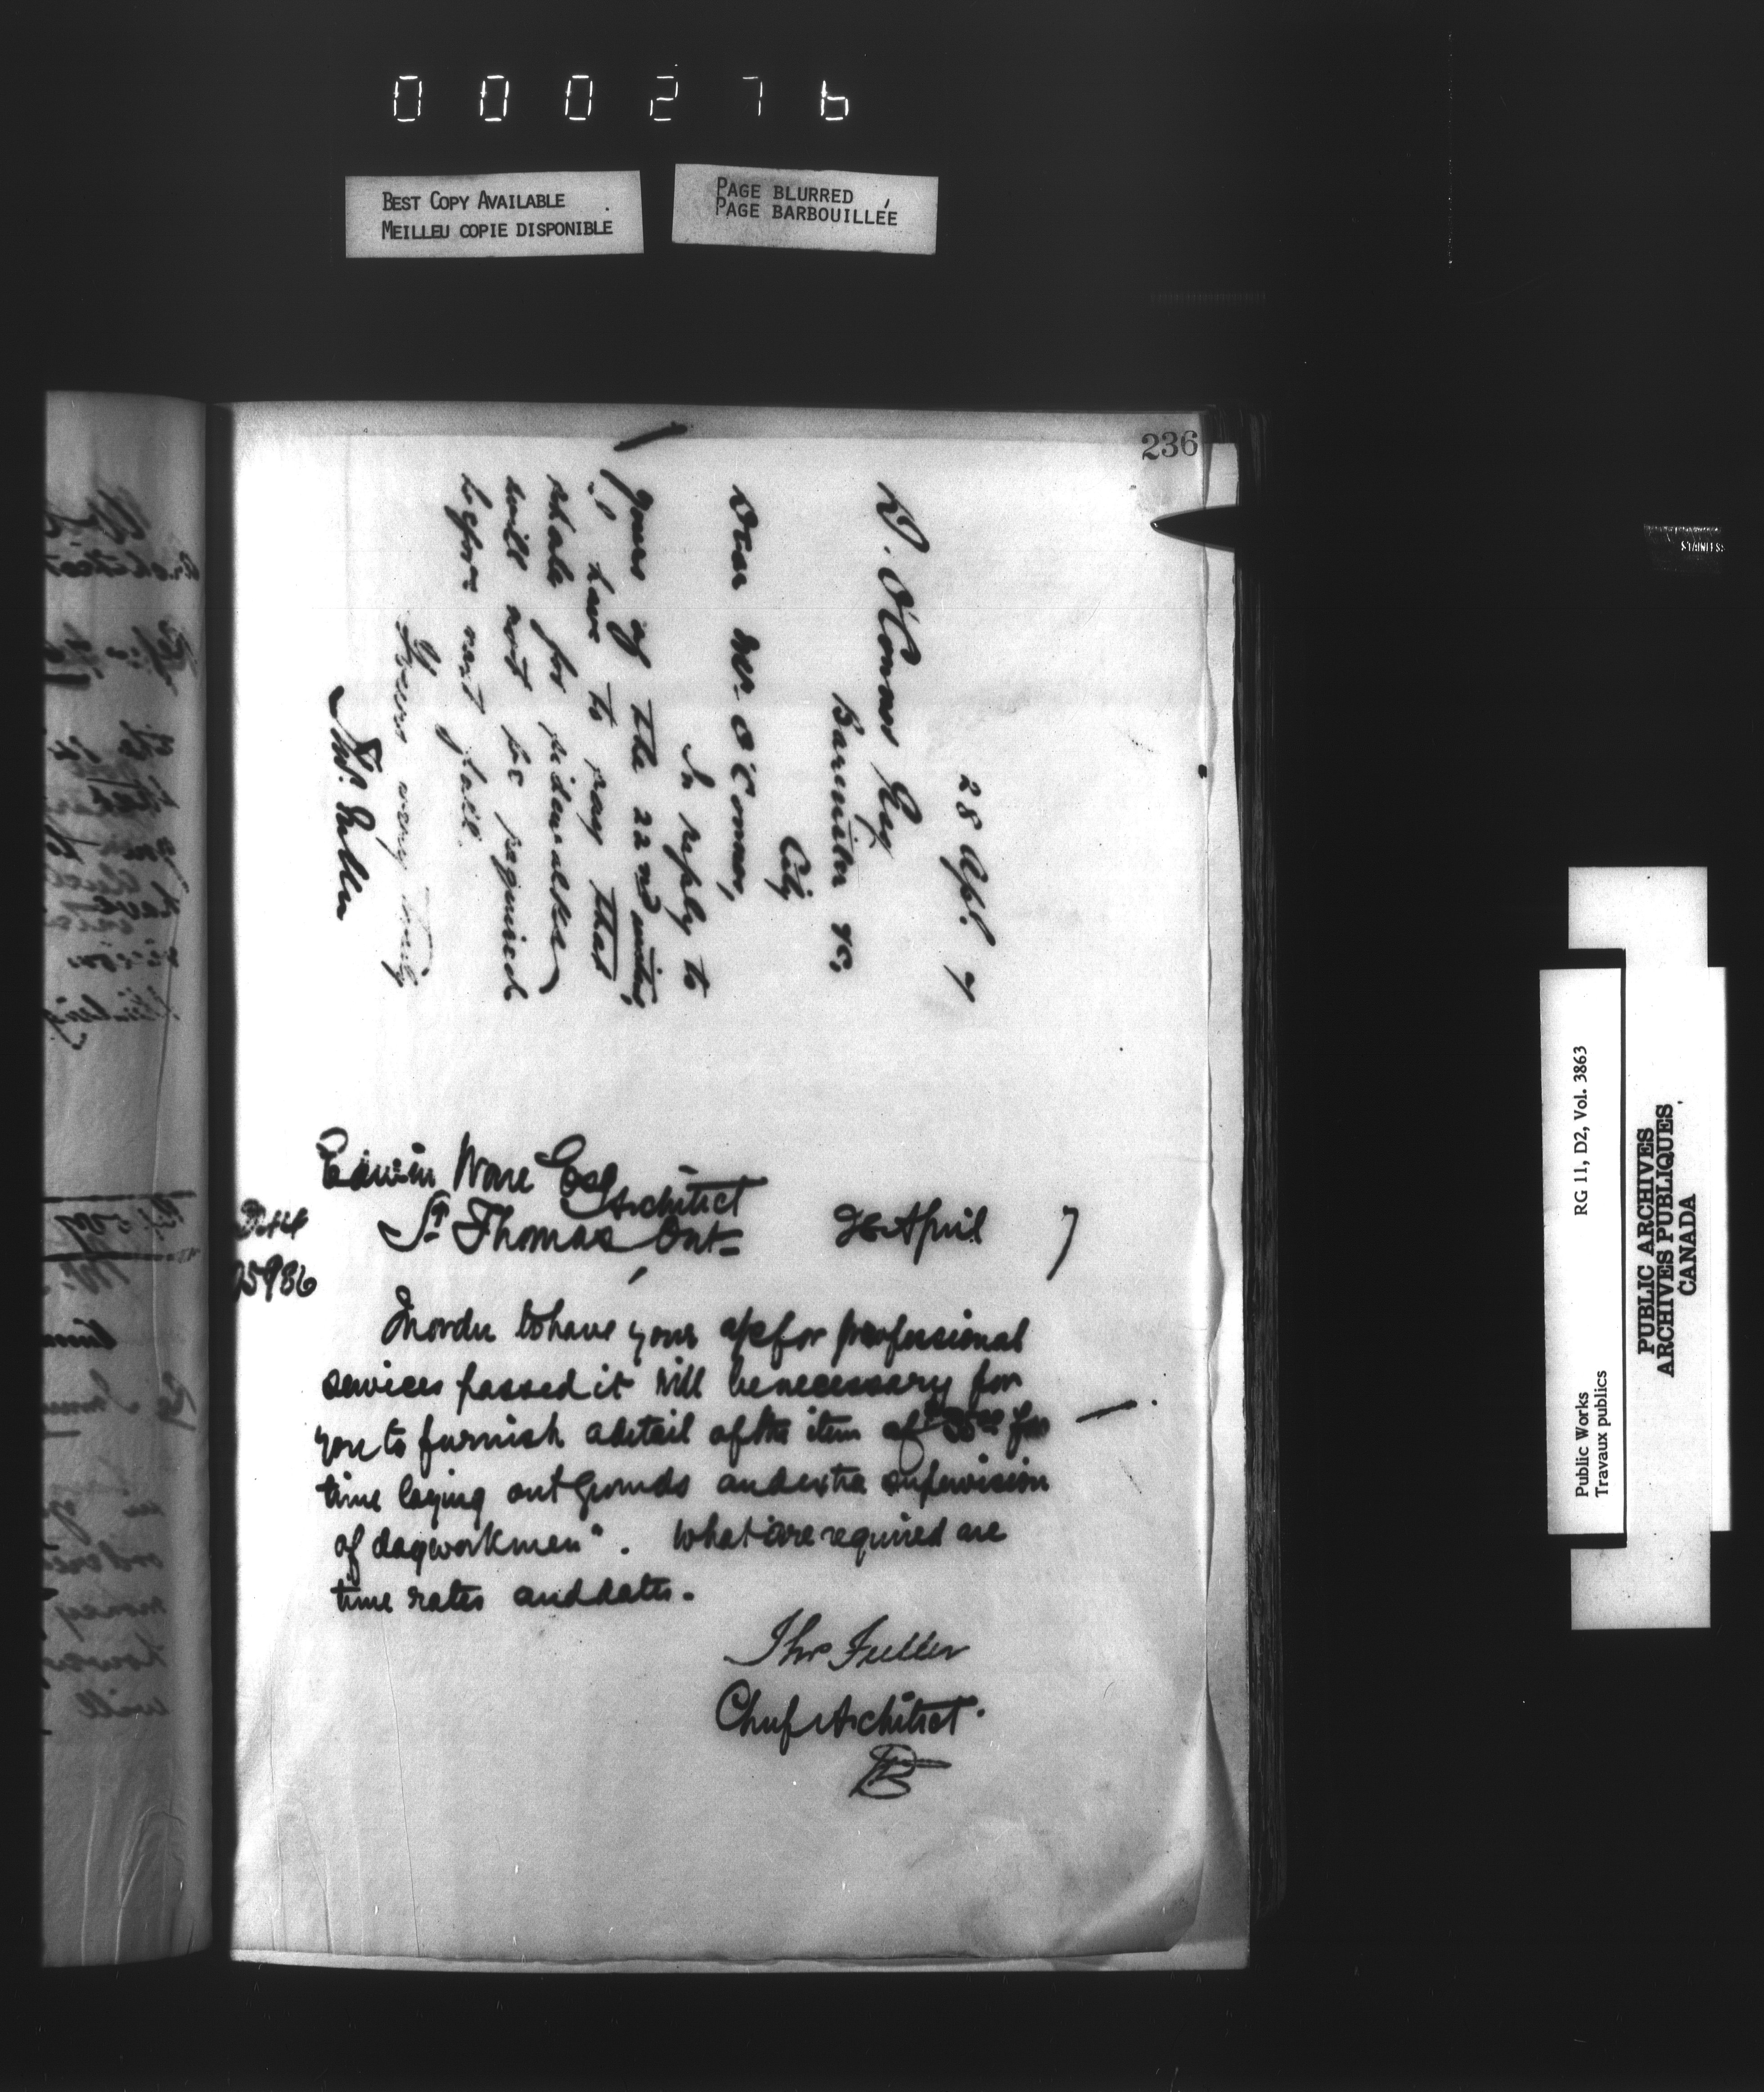 000276
BEST COPY AVAILABLE
MEILLEU COPIE DISPONIBLE
PAGE BLURRED
PAGE BARBOUILLÉE
236
28 Apl. 7
D. O'Connor Esq
Barrister &c,
City
Dear Mr. O'Connor,
In reply to
yours of the 22nd
I have to say that
will not be required
before next fall.
Yours very truly
Thos. Fuller
Edwin Ware Esq
Architect
St Thomas Ont=
28 April 7
95986
In order to have your a/c for professional
services passed it will be necessary for
you to furnish a detail of the item of for
time laying out grounds and extra supervision
of day workmen". What are required are
time rates and dates.
Thos Fuller
Chief Architect.
STAINLESS
RG 11, D2, Vol. 3863
Public Works
Travaux publics
PUBLIC ARCHIVES
ARCHIVES PUBLIQUES
CANADA